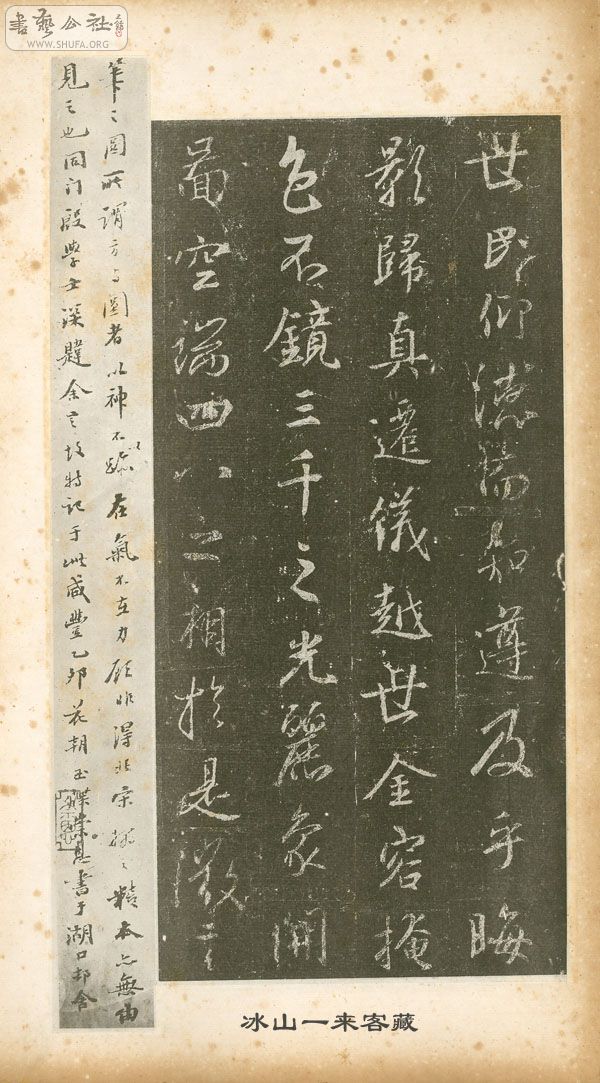 書藝公社
WWW.SHUFA.ORG
世民仰德而知遵及乎晦
影歸真遷儀越世金容掩
色不鏡三千之光麗象開
圖空端四八之相於是微言
筆之圓所謂方与圓者以神不以跡在氣不在力顧非得北宋拓之精本亦無由
見之也同門殷學士深韙余言故特記于此咸豐乙卯花朝玉牒崇恩書于湖口邨舍
冰山一来客藏